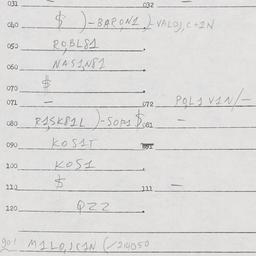 031 — 032 —
040 $ )-BARON1,)-VALOJ,C+1N
050 ROBL81
060 NAS1N81
070 $
071 — 072 POL1V1N/—
080 R1SK81L )-SOP1$ 081 —
090 KOS1T
100 KOS1
110 $ 111 —
120 QZZ
901 M1LO,1C1N (/214050